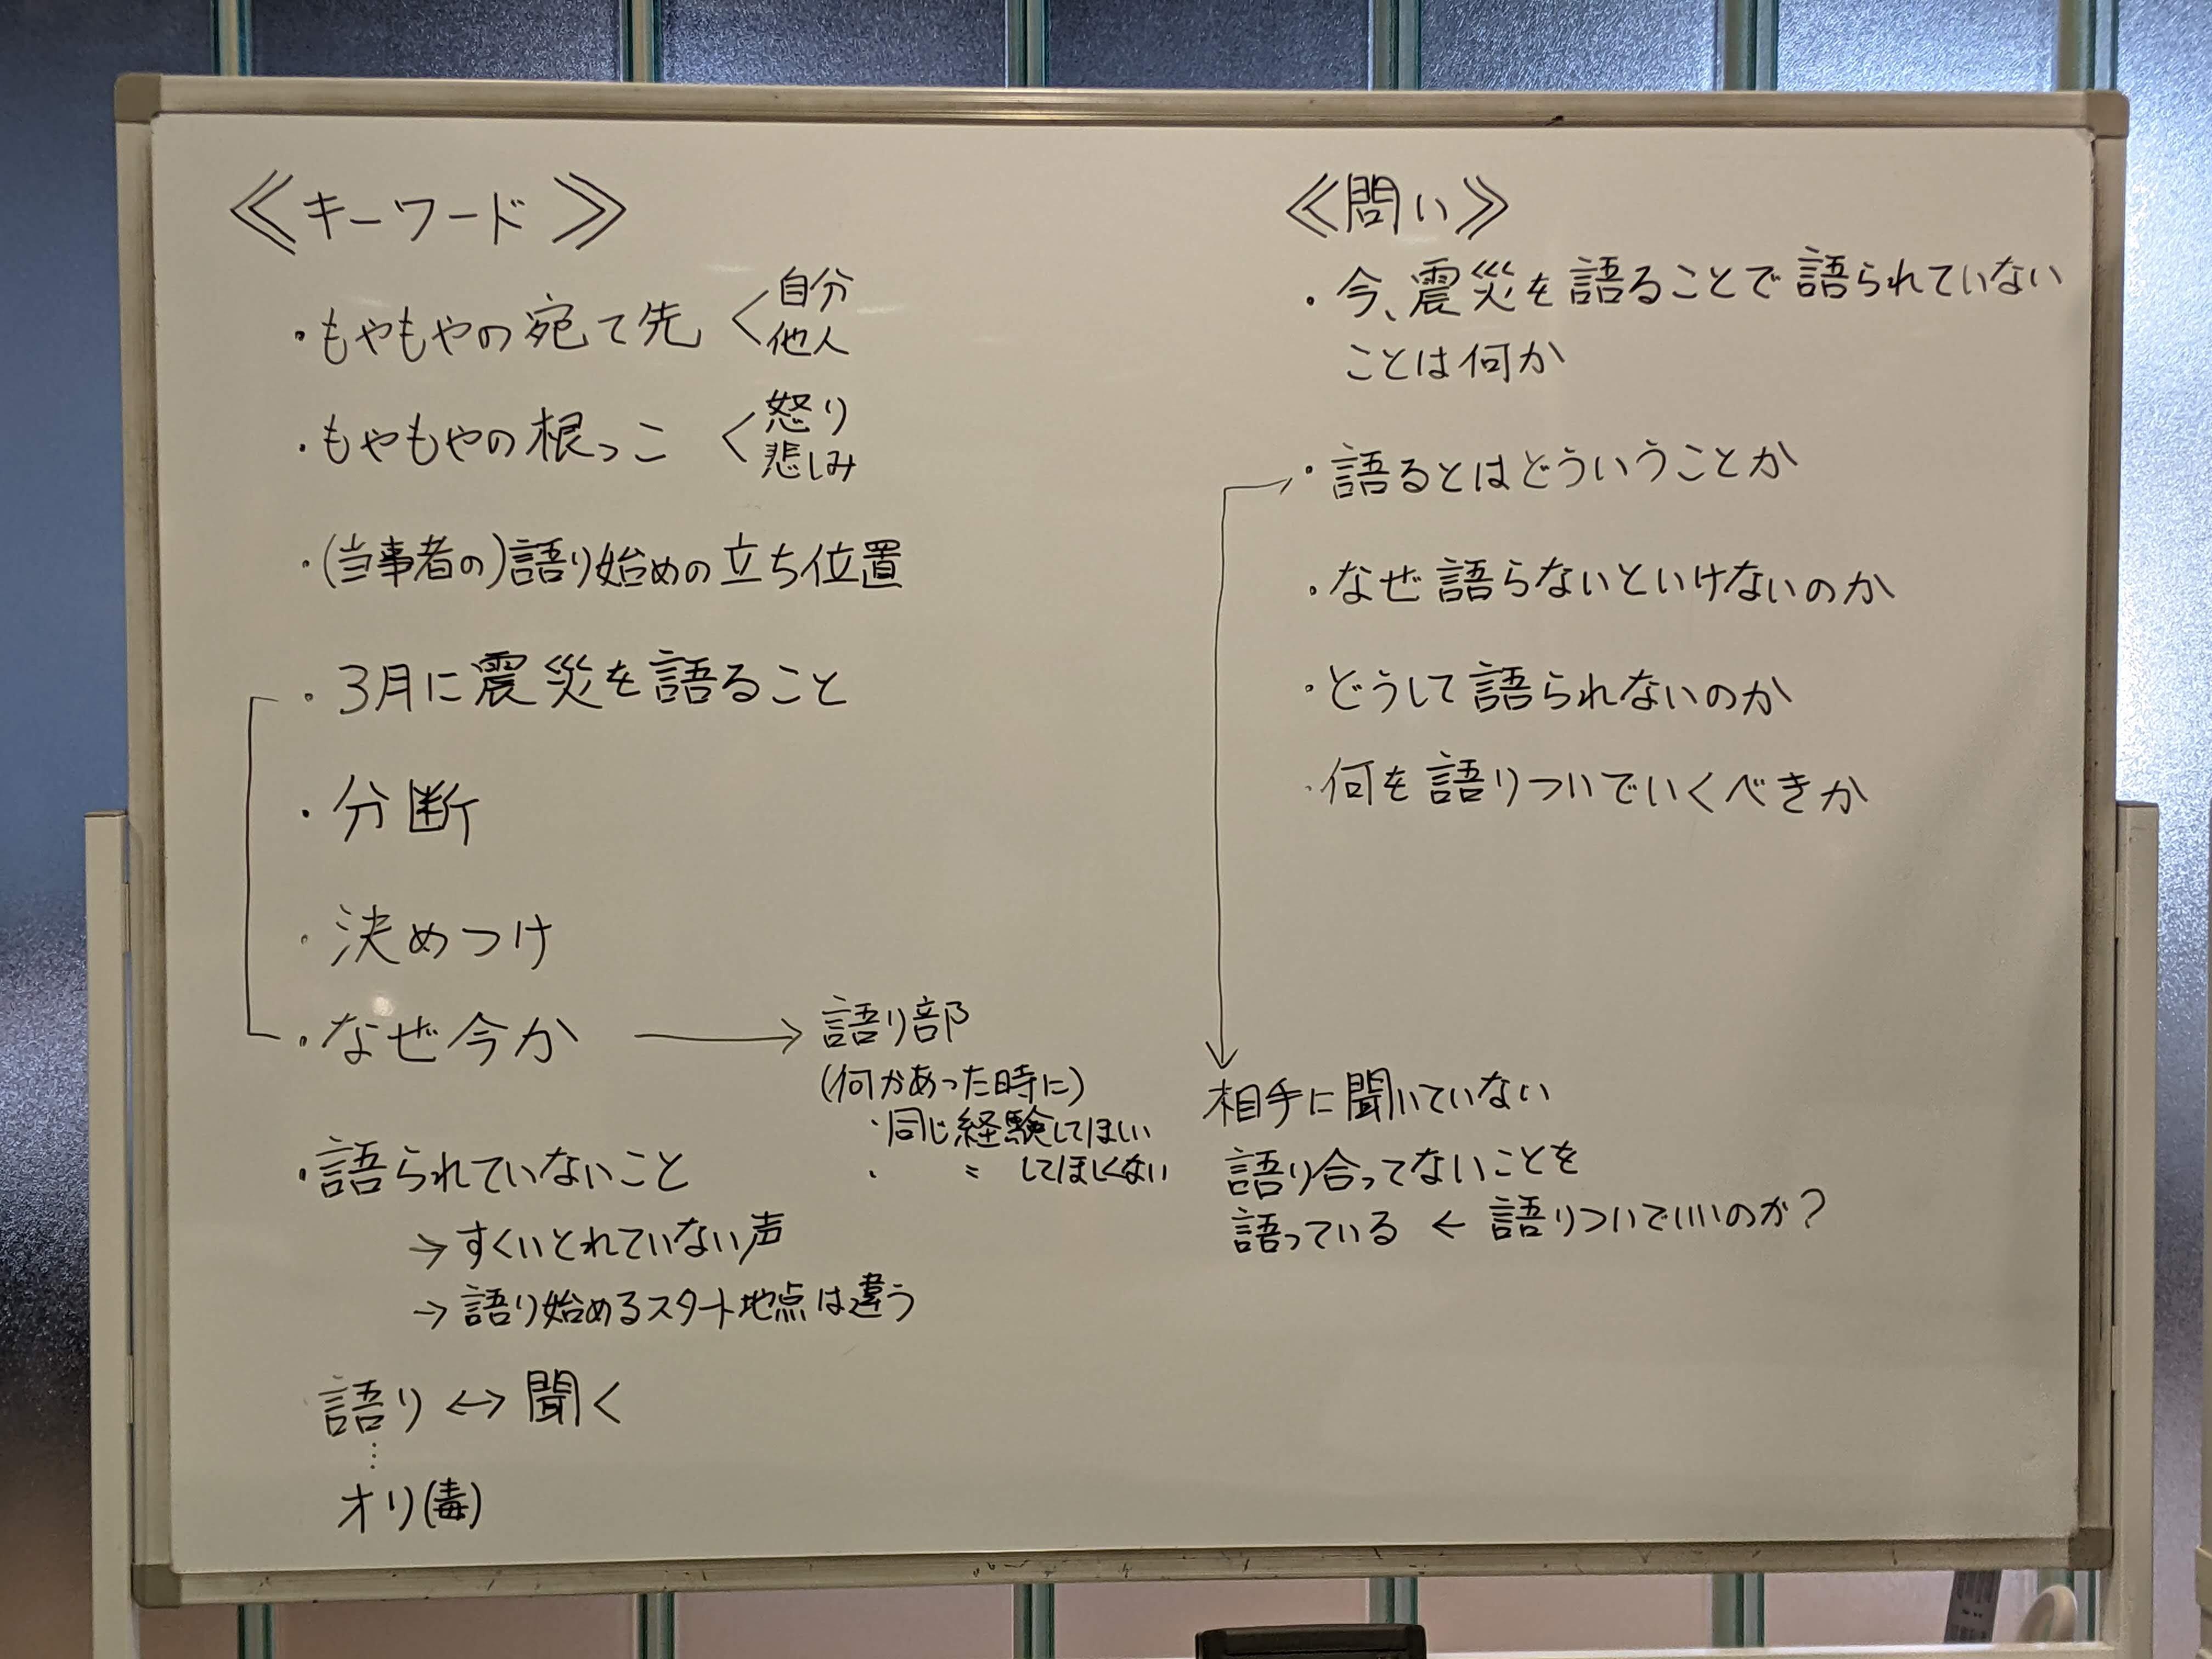 ≪キーワード≫
・もやもやの宛て先 < 自分
他人
・もやもやの根っこ < 怒り
悲しみ
・(当事者の)語り始めの立ち位置
・3月に震災を語ること
・分断
・決めつけ
・なぜ今か → 語り部
(何かあった時に)
・同じ経験してほしい
・ 〃 してほしくない
・語られていないこと
→ すくいとれていない声
→ 語り始めるスタート地点は違う
語り ↔ 聞く
⋮
オリ(毒)
≪問い≫
・今、震災を語ることで語られていない
ことは何か
・語るとはどういうことか
・なぜ語らないといけないのか
・どうして語られないのか
・何を語りついでいくべきか
相手に聞いていない
語り合ってないことを
語っている ← 語りついでいいのか?